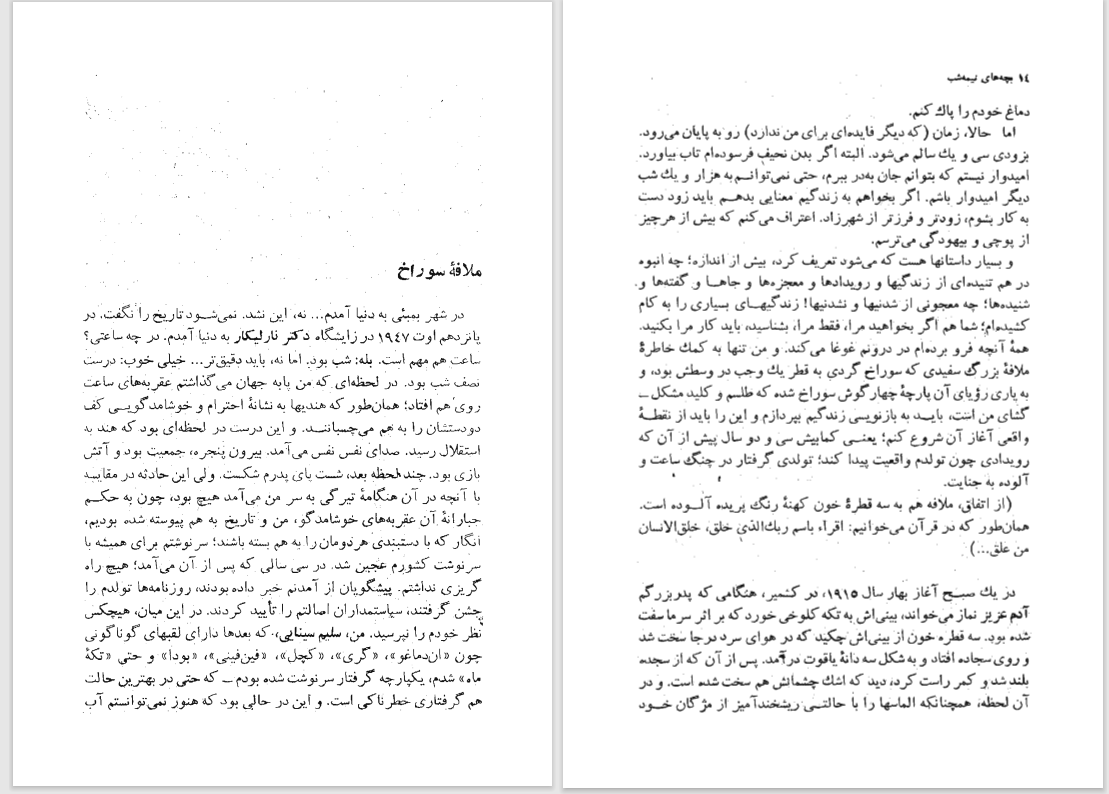 ملافهٔ سوراخ
در شهر بمبئی به دنیا آمدم... نه، این نشد. نمی‌شود تاریخ را نگفت. در
پانزدهم اوت ۱۹۴۷ در زایشگاه دکتر نارلیکار به دنیا آمدم. در چه ساعتی؟
ساعت هم مهم است. بله: شب بود. اما نه، باید دقیق‌تر... خیلی خوب: درست
نصف شب بود. در لحظه‌ای که من پابه جهان می‌گذاشتم عقربه‌های ساعت
روی هم افتاد؛ همان‌طور که هندیها به نشانهٔ احترام و خوشامدگویی کف
دودستشان را به هم می‌چسبانند. و این درست در لحظه‌ای بود که هند به
استقلال رسید. صدای نفس نفس می‌آمد. بیرون پنجره، جمعیت بود و آتش
بازی بود. چند لحظه بعد، شست پای پدرم شکست. ولی این حادثه در مقایسه
با آنچه در آن هنگامهٔ تیرگی به سر من می‌آمد هیچ بود، چون به حکم
جبارانهٔ آن عقربه‌های خوشامدگو، من و تاریخ به هم پیوسته شده بودیم،
انگار که با دستبندی هردومان را به هم بسته باشند؛ سرنوشتم برای همیشه با
سرنوشت کشورم عجین شد. در سی سالی که پس از آن می‌آمد؛ هیچ راه
گریزی نداشتم. پیشگویان از آمدنم خبر داده بودند، روزنامه‌ها تولدم را
جشن گرفتند، سیاستمداران اصالتم را تأیید کردند. در این میان، هیچکس
نظر خودم را نپرسید. من، سلیم سینایی، که بعدها دارای لقبهای گوناگونی
چون «ان‌دماغو»، «گری»، «کچل»، «فین‌فینی»، «بودا» و حتی «تکهٔ
ماه» شدم، یکپارچه گرفتار سرنوشت شده بودم ــ که حتی در بهترین حالت
هم گرفتاری خطرناکی است. و این در حالی بود که هنوز نمی‌توانستم آب
۱۴ بچه‌های نیمه‌شب
دماغ خودم را پاك کنم.
اما حالا، زمان (که دیگر فایده‌ای برای من ندارد) رو به پایان می‌رود.
بزودی سی و یك سالم می‌شود. البته اگر بدن نحیف فرسوده‌ام تاب بیاورد.
امیدوار نیستم که بتوانم جان به‌در ببرم، حتی نمی‌توانم به هزار و یك شب
دیگر امیدوار باشم. اگر بخواهم به زندگیم معنایی بدهم باید زود دست
به کار بشوم، زودتر و فرزتر از شهرزاد. اعتراف می‌کنم که بیش از هرچیز
از پوچی و بیهودگی می‌ترسم.
و بسیار داستانها هست که می‌شود تعریف کرد، بیش از اندازه؛ چه انبوه
در هم تنیده‌ای از زندگیها و رویدادها و معجزه‌ها و جاها و گفته‌ها و
شنیده‌ها؛ چه معجونی از شدنیها و نشدنیها! زندگیهای بسیاری را به کام
کشیده‌ام؛ شما هم اگر بخواهید مرا، فقط مرا، بشناسید، باید کار مرا بکنید.
همهٔ آنچه فرو برده‌ام در درونم غوغا می‌کند. و من تنها به کمك خاطرهٔ
ملافهٔ بزرگ سفیدی که سوراخ گردی به قطر یك وجب در وسطش بود، و
به یاری رؤیای آن پارچهٔ چهارگوش سوراخ شده که طلسم و کلید مشکل ــ
گشای من است، باید به بازنویسی زندگیم بپردازم و این را باید از نقطهٔ
واقعی آغاز آن شروع کنم؛ یعنی کمابیش سی و دو سال پیش از آن که
رویدادی چون تولدم واقعیت پیدا کند؛ تولدی گرفتار در چنگ ساعت و
آلوده به جنایت.
(از اتفاق، ملافه هم به سه قطرهٔ خون کهنهٔ رنگ پریده آلوده است.
همان‌طور که در قرآن می‌خوانیم: اقراء باسم ربك‌الذی خلق، خلق‌الانسان
من علق...)
در یك صبح آغاز بهار سال ۱۹۱۵، در کشمیر، هنگامی که پدربزرگم
آدم عزیز نماز می‌خواند، بینی‌اش به تکه کلوخی خورد که بر اثر سرما سفت
شده بود. سه قطره خون از بینی‌اش چکید که در هوای سرد درجا سخت شد
و روی سجاده افتاد و به شکل سه دانهٔ یاقوت درآمد. پس از آن که از سجده
بلند شد و کمر راست کرد، دید که اشك چشمانش هم سخت شده است. و در
آن لحظه، همچنانکه الماسها را با حالتی ریشخندآمیز از مژگان خود